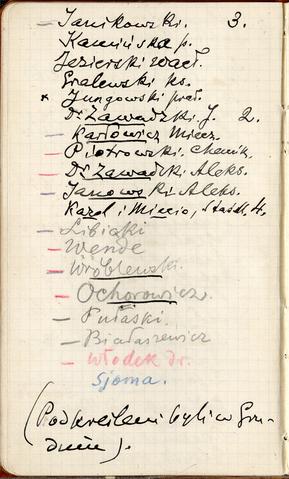 – Janikowski. 3.
Kamińska p.
Jezierski Wacł.
Gralewski ks.
× Jungowski prał.
Dr Zawadzki J. 2.
– Karłowicz Miecz.
– Piotrowski. Chemik.
– Dr Zawadzki Aleks.
– Janowski Aleks.
Karol i Miecio, Staśek H.
– Libicki
– Wende
– Wróblewski.
– Ochorowicz.
– Pułaski.
– Białaszewicz
– Włodek dr.
Sjoma.
(Podkreśleni byli w Gru-
dniu).